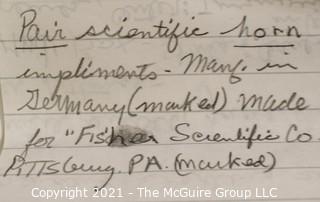 Pair scientific horn
impliments - Manf. in
Germany (marked) Made
for "Fisher Scientific Co.
Pittsburg, PA. (marked)
Copyright 2021 - The McGuire Group LLC